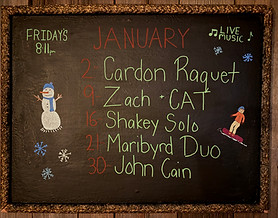 FRIDAYS
8-11
JANUARY
LIVE
MUSIC
2 Cardon Raquet
9 Zach + CAT
16 Shakey Solo
Maribyrd Duo
30 John Cain